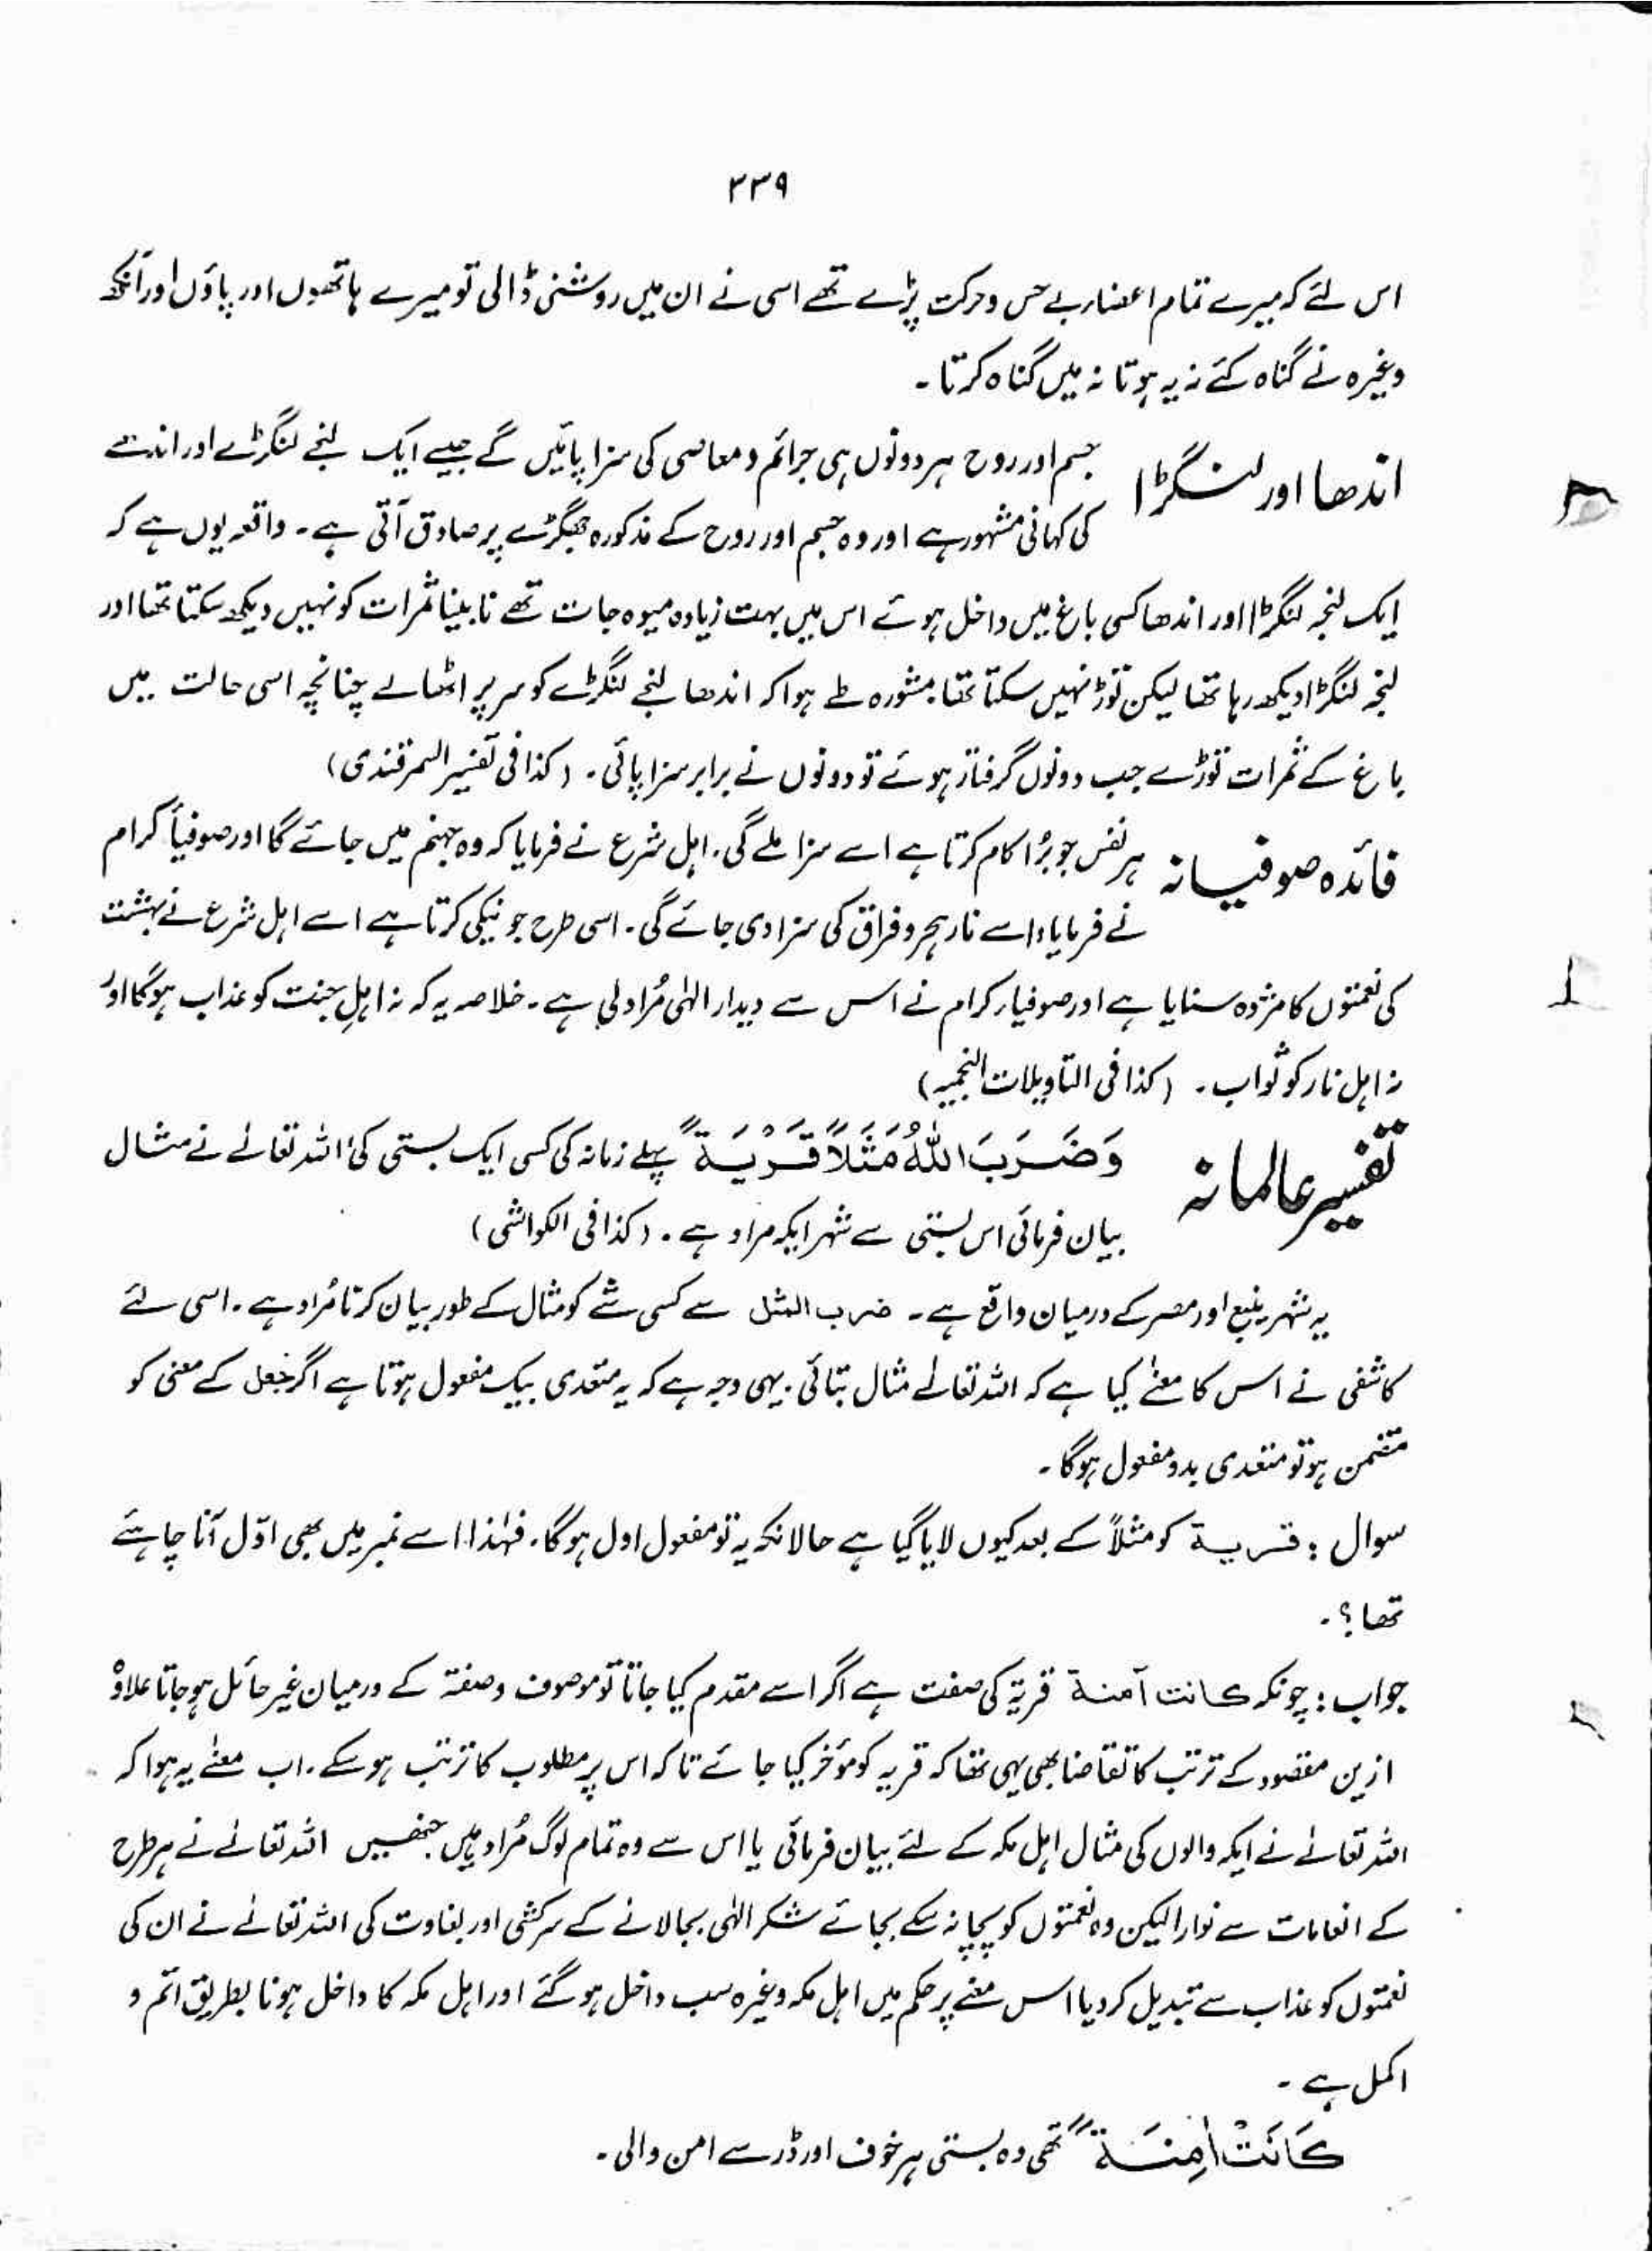 ۳۳۹
اس لئے کہ میرے تمام اعضاء بے حس و حرکت پڑے تھے اسی نے ان میں روشنی ڈالی تو میرے ہاتھوں اور پاؤں اور آنکھ
وغیرہ نے گناہ کئے نہ یہ ہوتا نہ میں گناہ کرتا۔
اندھا اور لنگڑا
جسم اور روح ہر دونوں ہی جرائم و معاصی کی سزا پائیں گے جیسے ایک لنجے لنگڑے اور اندھے
کی کہانی مشہور ہے اور وہ جسم اور روح کے مذکورہ جھگڑے پر صادق آتی ہے۔ واقعہ یوں ہے کہ
ایک لنجہ لنگڑا اور اندھا کسی باغ میں داخل ہوئے اس میں بہت زیادہ میوہ جات تھے نابینا ثمرات کو نہیں دیکھ سکتا تھا اور
لنجہ لنگڑا دیکھ رہا تھا لیکن توڑ نہیں سکتا تھا مشورہ طے ہوا کہ اندھا لنجے لنگڑے کو سر پر اٹھا لے چنانچہ اسی حالت میں
باغ کے ثمرات توڑے جب دونوں گرفتار ہوئے تو دونوں نے برابر سزا پائی۔ (کذا فی تفسیر السمرقندی)
فائدہ صوفیانہ
ہر نفس جو بُرا کام کرتا ہے اسے سزا ملے گی۔ اہل شرع نے فرمایا کہ وہ جہنم میں جائے گا اور صوفیأ کرام
نے فرمایا، اسے نار ہجر و فراق کی سزا دی جائے گی۔ اسی طرح جو نیکی کرتا ہے اسے اہل شرع نے بہشت
کی نعمتوں کا مژدہ سنایا ہے اور صوفیاء کرام نے اس سے دیدار الہٰی مُراد لی ہے۔ خلاصہ یہ کہ نہ اہلِ جنت کو عذاب ہوگا اور
نہ اہل نار کو ثواب۔ (کذا فی التاویلات النجمیہ)
تفسیر عالمانہ
وَضَرَبَ اللّٰهُ مَثَلًا قَرْيَةً پہلے زمانہ کی کسی ایک بستی کی اللہ تعالےٰ نے مثال
بیان فرمائی اس بستی سے شہر ایکہ مراد ہے۔ (کذا فی الکواشی)
یہ شہر ینبع اور مصر کے درمیان واقع ہے۔ ضرب المثل سے کسی شے کو مثال کے طور بیان کرنا مُراد ہے۔ اسی لئے
کاشفی نے اس کا معنےٰ کیا ہے کہ اللہ تعالےٰ مثال بتائی۔ یہی وجہ ہے کہ یہ متعدی بیک مفعول ہوتا ہے اگر جعل کے معنی کو
متضمن ہو تو متعدی بدو مفعول ہوگا۔
سوال : قریۃ کو مثلاً کے بعد کیوں لایا گیا ہے حالانکہ یہ تو مفعول اول ہوگا۔ فلہٰذا اسے نمبر میں بھی اوّل آنا چاہئے
تھا؟۔
جواب : چونکہ کانت آمنۃ قریۃ کی صفت ہے اگر اسے مقدم کیا جاتا تو موصوف و صفۃ کے درمیان غیر حائل ہو جاتا علاوہ
ازین مقصود کے ترتب کا تقاضا بھی یہی تھا کہ قریہ کو مؤخر کیا جائے تاکہ اس پر مطلوب کا ترتب ہو سکے۔ اب معنےٰ یہ ہوا کہ
اللہ تعالےٰ نے ایکہ والوں کی مثال اہل مکہ کے لئے بیان فرمائی یا اس سے وہ تمام لوگ مُراد ہیں جنھیں اللہ تعالےٰ نے ہر طرح
کے انعامات سے نوازا لیکن وہ نعمتوں کو پہچانہ سکے بجائے شکر الٰہی بجا لانے کے سرکشی اور بغاوت کی اللہ تعالےٰ نے ان کی
نعمتوں کو عذاب سے تبدیل کر دیا اس معنے پر حکم میں اہل مکہ وغیرہ سب داخل ہو گئے اور اہل مکہ کا داخل ہونا بطریق اتم و
اکمل ہے۔
كَانَتْ اٰمِنَةً تھی وہ بستی ہر خوف اور ڈر سے امن والی۔